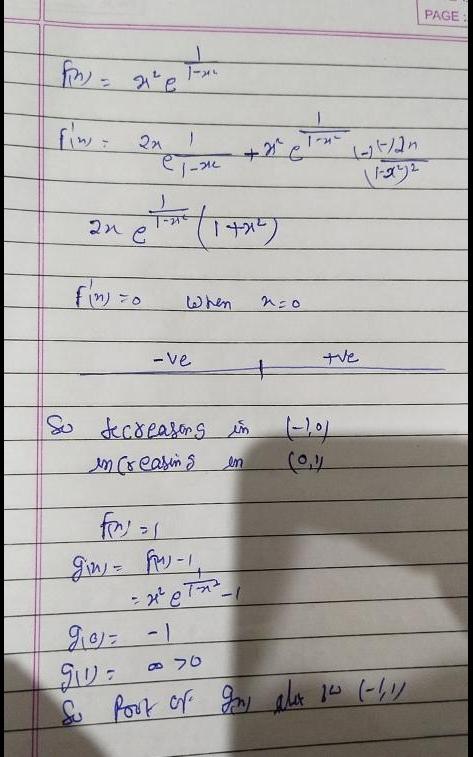 PAGE:
f(x) = x² e^(1/(1-x²))
f'(x) = 2x e^(1/(1-x²)) + x² e^(1/(1-x²)) (-)(-)2x/(1-x²)²
2x e^(1/(1-x²)) (1+x²)
f'(x) = 0 when x=0
-ve +ve
So decreasing in (-1,0)
increasing in (0,1)
f(x) = 1
g(x) = f(x) - 1
= x² e^(1/(1-x²)) - 1
g(0) = -1
g(1) = ∞ >0
So Root of g(x) in (-1,1)